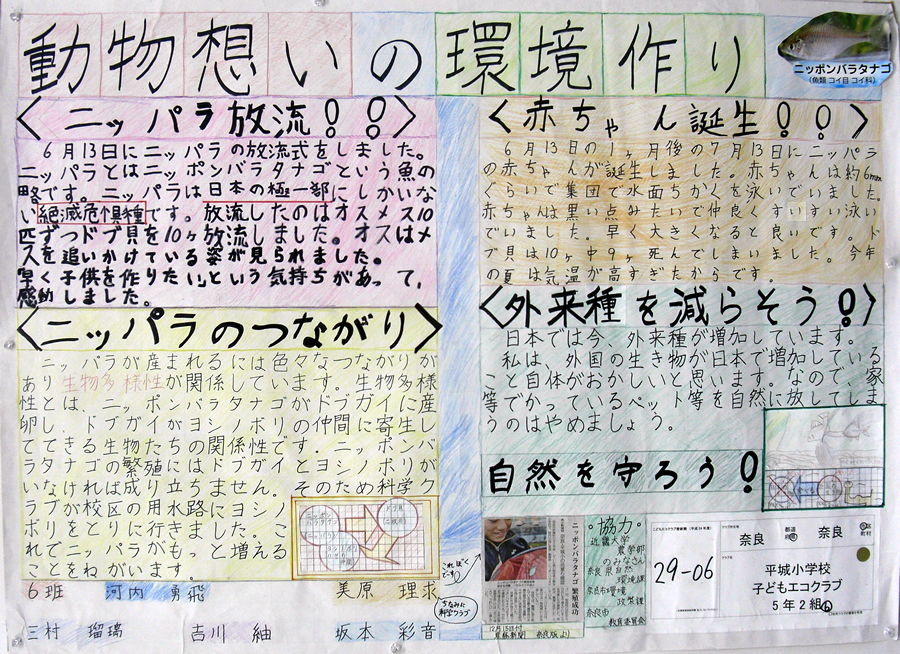 動物想いの環境作り
ニッポンバラタナゴ
(魚類 コイ目 コイ科)
〈ニッパラ放流!!〉
6月13日にニッパラの放流式をしました。
ニッパラとはニッポンバラタナゴという魚の
略です。ニッパラは日本の極一部にしかいな
い絶滅危惧種です。放流したのはオスメス10
匹ずつドブ貝を10ヶ放流しました。オスはメ
スを追いかけている姿が見られました。
早く子供を作りたい」という気持ちがあって、
感動しました。
〈ニッパラのつながり〉
ニッパラが産まれるには色々なつながりが
あり生物多様性が関係しています。生物多様
性とは、ニッポンバラタナゴがドブガイに産
卵し、ドブガイがヨシノボリの仲間に寄生し
てできる生物たちの関係性です。ニッポンバ
ラタナゴの繁殖にはドブガイとヨシノボリが
いなければ成り立ちません。そのため科学ク
ラブが校区の用水路にヨシノ
ボリをとりに行きました。こ
れでニッパラがもっと増える
ことをねがいます。
6班 河内 勇飛 美原 理求
三村 瑠璃 吉川 紬 坂本 彩音
〈赤ちゃん誕生!!〉
6月13日の1ヶ月後の7月13日にニッパラ
の赤ちゃんが誕生しました。赤ちゃんは約6mm
ぐらいで集団で水面ちかくを泳いでいました。
赤ちゃんは黒い点みたいで仲良くすいすい泳い
でいました。早く大きくなると良いです。ド
ブ貝は10ヶ中9ヶ死んでしまいました。今年
の夏は気温が高すぎたからです。
〈外来種を減らそう!〉
日本では今、外来種が増加しています。
私は、外国の生き物が日本で増加している
こと自体がおかしいと思います。なので、家
等でかっているペット等を自然に放してしま
うのはやめましょう。
自然を守ろう!
ニッポンバラタナゴ 繁殖成功
・協力・
近畿大学
農学部
のみなさん
奈良県自然
環境課
奈良市環境
政策課
奈良市
教育委員会
ちなみに
科学クラブ
29-06
奈良 奈良
平城小学校
子どもエコクラブ
5年2組